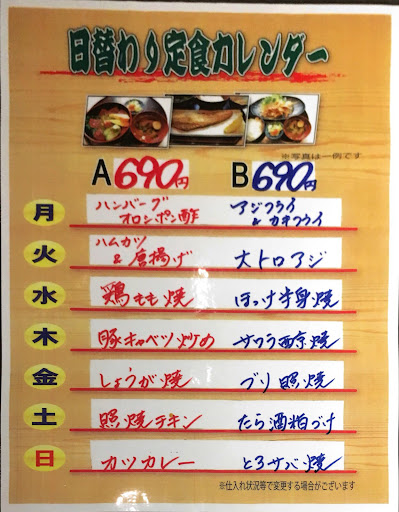 日替わり定食カレンダー
※写真は一例です
A 690円 B 690円
月 ハンバーグ オロシポン酢 アジフライ & カキフライ
火 ハムカツ & 唐揚げ 大トロアジ
水 鶏もも焼 ほっけ半身焼
木 豚キャベツ炒め サワラ西京焼
金 しょうが焼 ブリ照焼
土 照焼チキン たら酒粕づけ
日 カツカレー とろサバ焼
※仕入れ状況等で変更する場合がございます